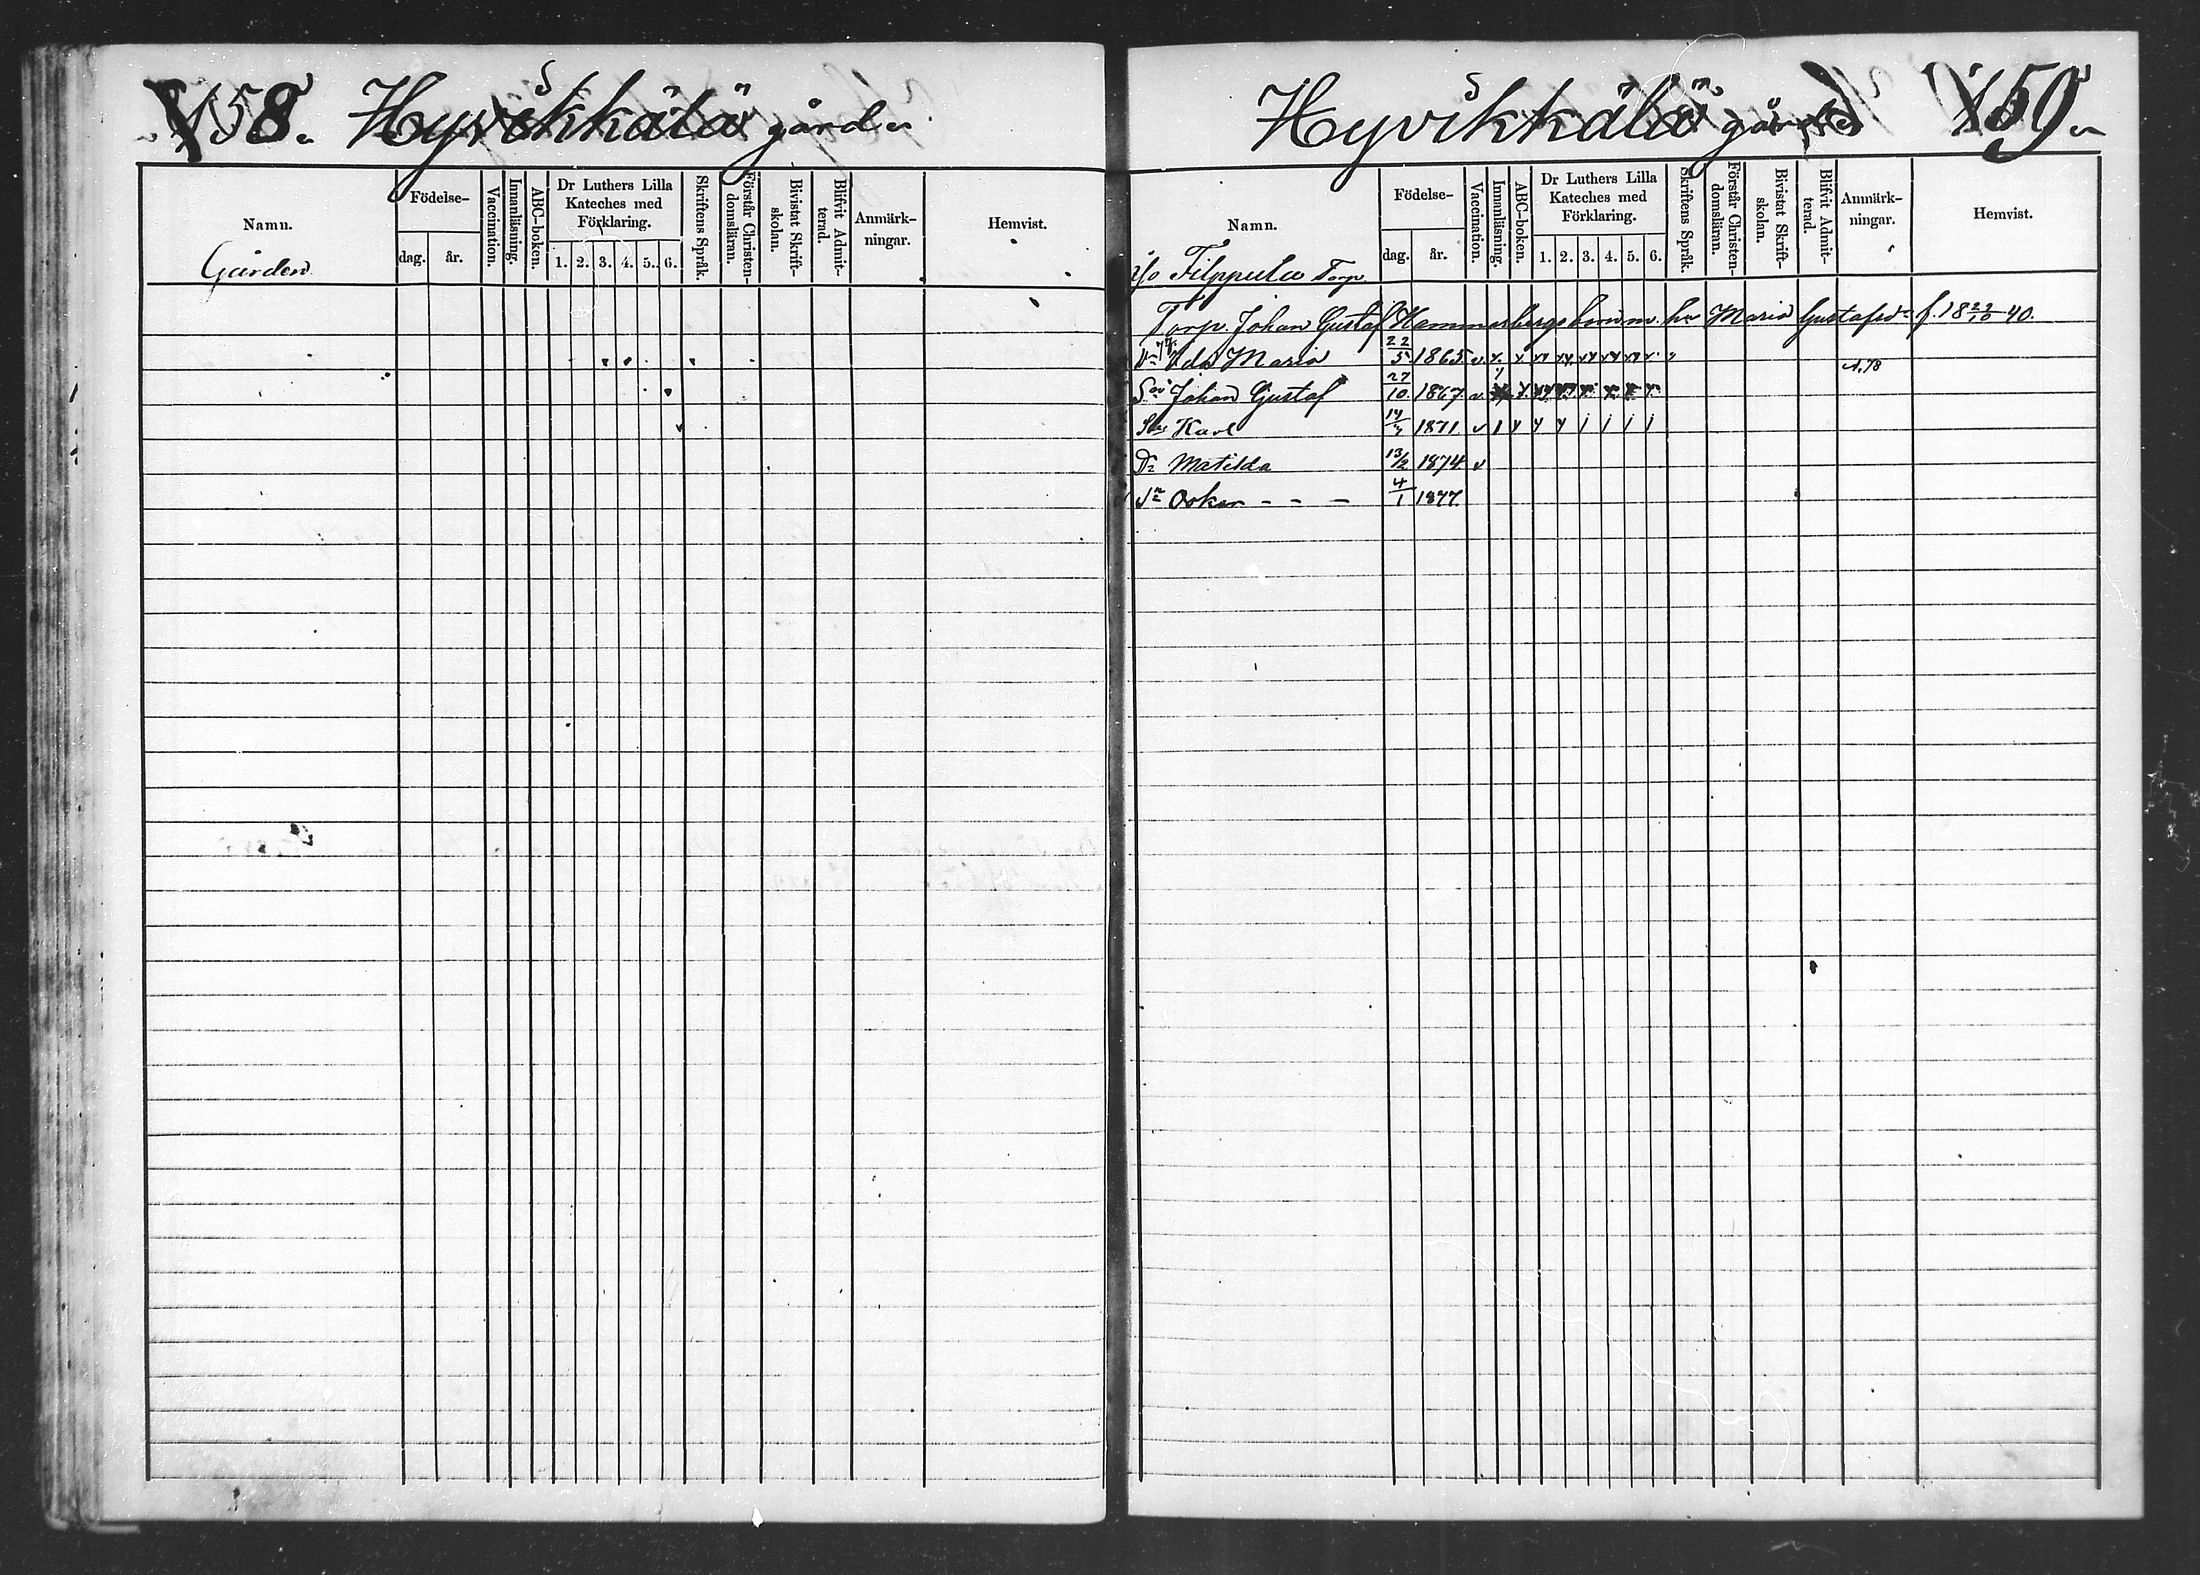 158. Hyvikkälä gård
Namn. Födelse- dag. år. Vaccination. Innanläsning. ABC-boken. Dr Luthers Lilla Kateches med Förklaring. 1. 2. 3. 4. 5. 6. Skriftens Språk. Förstår Christen-domsläran. Bivistat Skrift-skolan. Blifvit Admit-terad. Anmärk-ningar. Hemvist.
Gården
Hyvikkälä gård 159.
Namn. Födelse- dag. år. Vaccination. Innanläsning. ABC-boken. Dr Luthers Lilla Kateches med Förklaring. 1. 2. 3. 4. 5. 6. Skriftens Språk. Förstår Christen-domsläran. Bivistat Skrift-skolan. Blifvit Admit-terad. Anmärk-ningar. Hemvist.
Filppula Torp.
Torp. Johan Gustaf Hammarbergs hu Maria Gustafsd. f. 18 22/10 40.
Ida Maria 22/5 1865 v. A.78
Son Johan Gustaf 27/10 1867 v.
Son Karl 14/4 1871 v
Dr Matilda 13/2 1874 v
Sn Oskar - - - 4/1 1877.